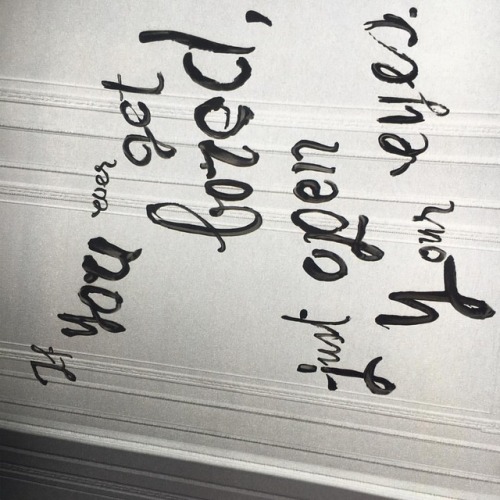 If you ever get
bored,
just open
your eyes.